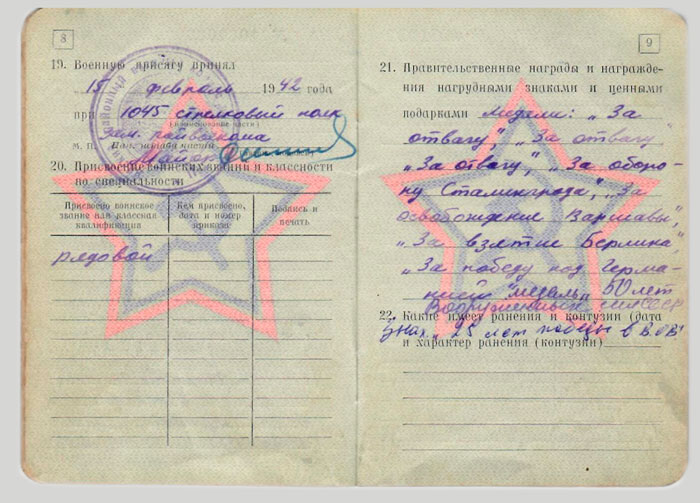 8
19. Военную присягу принял
15 февраль 1942 года
при 1045 стрелковый полк
(наименование части)
зам. райвоенкома
М. П. Нач. штаба части
Майор
20. Присвоение воинских званий и классности
по специальности
Присвоено воинское звание или классная квалификация
Кем присвоено, дата и номер приказа
Подпись и печать
рядовой
9
21. Правительственные награды и награжде-
ния нагрудными знаками и ценными
подарками Медали: „За
отвагу", „За отвагу
„За отвагу", „За оборо-
ну Сталинграда", „За
освобождение Варшавы",
„За взятие Берлина",
„За победу над Герма-
нией" медаль „50 лет
Вооруженных сил СССР
22. Какие имеет ранения и контузии (дата
Знак „25 лет победы в В.О.В"
и характер ранения (контузии)